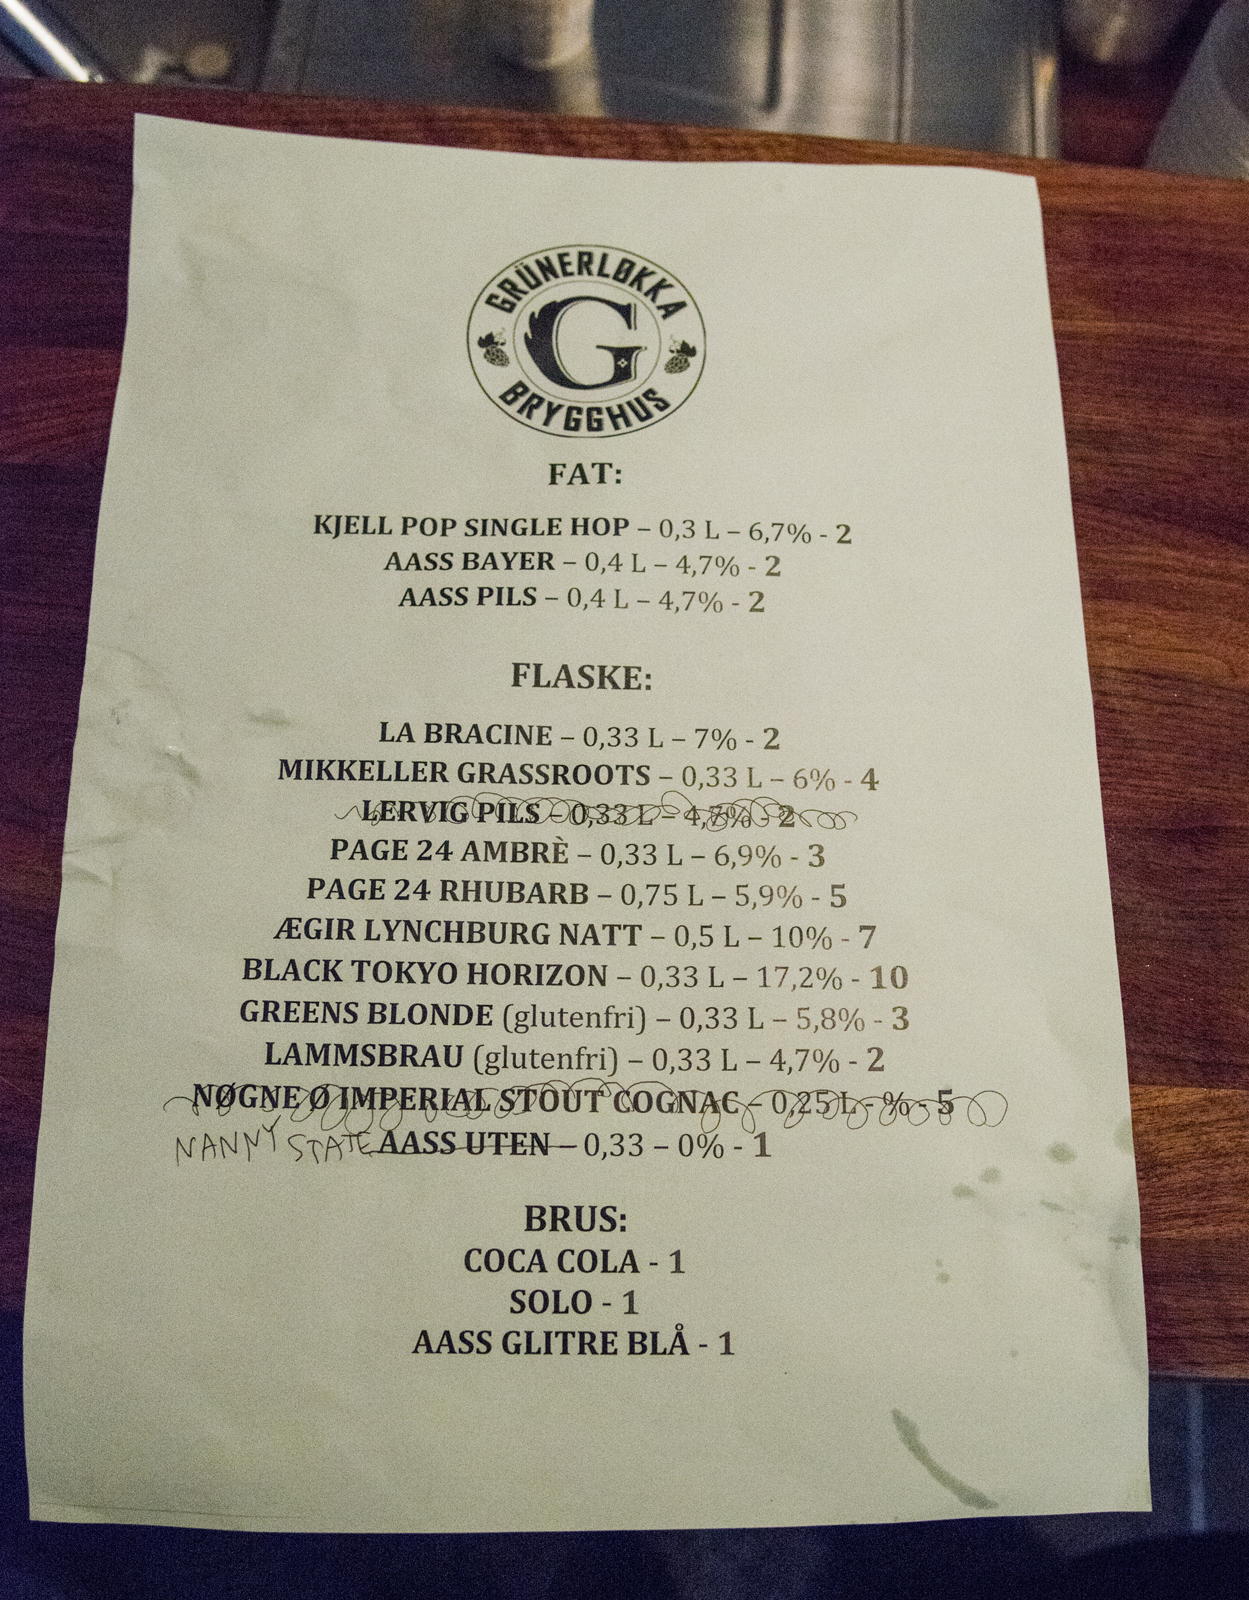 GRÜNERLØKKA
G
BRYGGHUS
FAT:
KJELL POP SINGLE HOP – 0,3 L – 6,7% - 2
AASS BAYER – 0,4 L – 4,7% - 2
AASS PILS – 0,4 L – 4,7% - 2
FLASKE:
LA BRACINE – 0,33 L – 7% - 2
MIKKELLER GRASSROOTS – 0,33 L – 6% - 4
LERVIG PILS – 0,33 L – 4,7% - 2
PAGE 24 AMBRÈ – 0,33 L – 6,9% - 3
PAGE 24 RHUBARB – 0,75 L – 5,9% - 5
ÆGIR LYNCHBURG NATT – 0,5 L – 10% - 7
BLACK TOKYO HORIZON – 0,33 L – 17,2% - 10
GREENS BLONDE (glutenfri) – 0,33 L – 5,8% - 3
LAMMSBRAU (glutenfri) – 0,33 L – 4,7% - 2
NØGNE Ø IMPERIAL STOUT COGNAC – 0,25 L - % - 5
NANNY STATE AASS UTEN – 0,33 – 0% - 1
BRUS:
COCA COLA - 1
SOLO - 1
AASS GLITRE BLÅ - 1